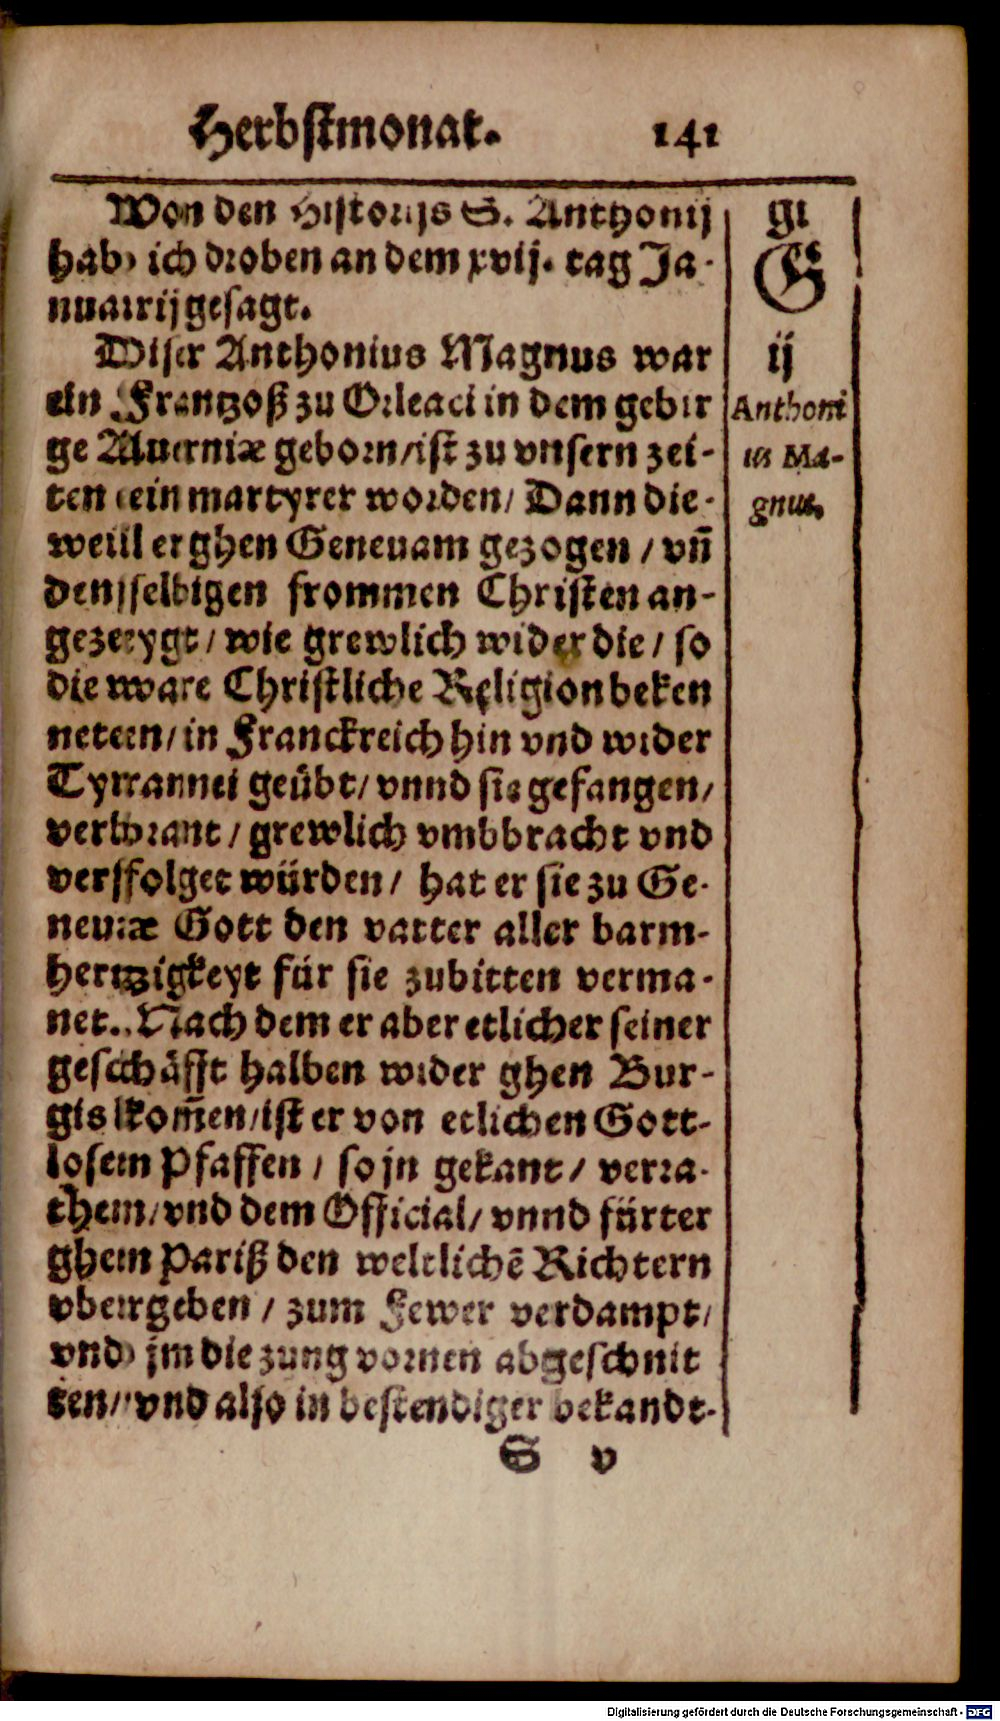 Herbstmonat. 141
Von den Historijs S. Anthonij
hab ich droben an dem xvij. tag Ja-
nuarij gesagt.
Diser Anthonius Magnus war
ein Frantzoß zu Orleaci in dem gebir
ge Auerniæ geborn/ist zu vnsern zei-
ten ein martyrer worden/ Dann die-
weill er ghen Geneuam gezogen / vñ
denselbigen frommen Christen an-
gezeygt / wie grewlich wider die / so
die ware Christliche Religion beken
neten/in Franckreich hin vnd wider
Tyrannei geübt/ vnnd sie gefangen/
verbrant / grewlich vmbbracht vnd
verffolget würden/ hat er sie zu Ge-
neuæ Gott den vatter aller barm-
hertzigkeyt für sie zubitten verma-
net. Nach dem er aber etlicher seiner
geschäfft halben wider ghen Bur-
gis kom̃en/ist er von etlichen Gott-
losen Pfaffen / so jn gekant / verra-
then/vnd dem Official/ vnnd fürter
ghen Pariß den weltlichē Richtern
vbergeben / zum Fewer verdampt/
vnd jm die zung vornen abgeschnit
ten/ vnd also in bestendiger bekandt-
S v
gi
G
ij
Anthoni
us Ma-
gnus.
Digitalisierung gefördert durch die Deutsche Forschungsgemeinschaft - DFG